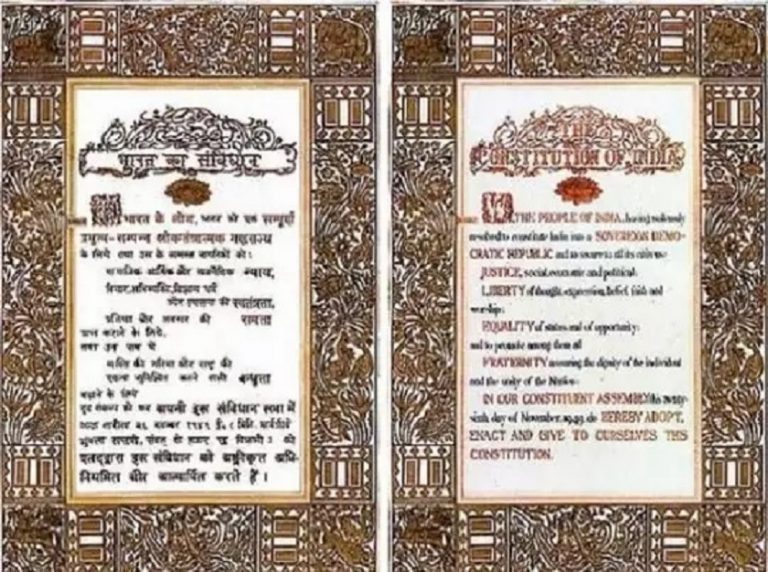 भारत का संविधान
भारत के लोग, भारत को एक सम्पूर्ण
प्रभुत्व-सम्पन्न लोकतंत्रात्मक गणराज्य
के लिये तथा उस के समस्त नागरिकों को :
सामाजिक आर्थिक और राजनैतिक न्याय,
विचार,अभिव्यक्ति,विश्वास धर्म
और उपासना की स्वतंत्रता,
प्रतिष्ठा और अवसर की समता
प्राप्त कराने के लिये,
तथा उन सब में
व्यक्ति की गरिमा और राष्ट्र की
एकता सुनिश्चित करने वाली बन्धुता
बढ़ाने के लिये
दृढ़ संकल्प हो कर अपनी इस संविधान सभा में
आज तारीख २६ नवम्बर १९४९ ई० ( मिति मार्गशीर्ष
शुक्ला सप्तमी, संवत् दो हजार छः विक्रमी ) को
एतद्द्वारा इस संविधान को अंगीकृत अधि-
नियमित और आत्मार्पित करते हैं ।
THE
CONSTITUTION OF INDIA
WE, THE PEOPLE OF INDIA, having solemnly
resolved to constitute India into a SOVEREIGN DEMO-
CRATIC REPUBLIC and to secure to all its citizens:
JUSTICE, social, economic and political;
LIBERTY of thought, expression, belief, faith and
worship;
EQUALITY of status and of opportunity;
and to promote among them all
FRATERNITY assuring the dignity of the individual
and the unity of the Nation;
IN OUR CONSTITUENT ASSEMBLY this twenty-
sixth day of November, 1949, do HEREBY ADOPT,
ENACT AND GIVE TO OURSELVES THIS
CONSTITUTION.